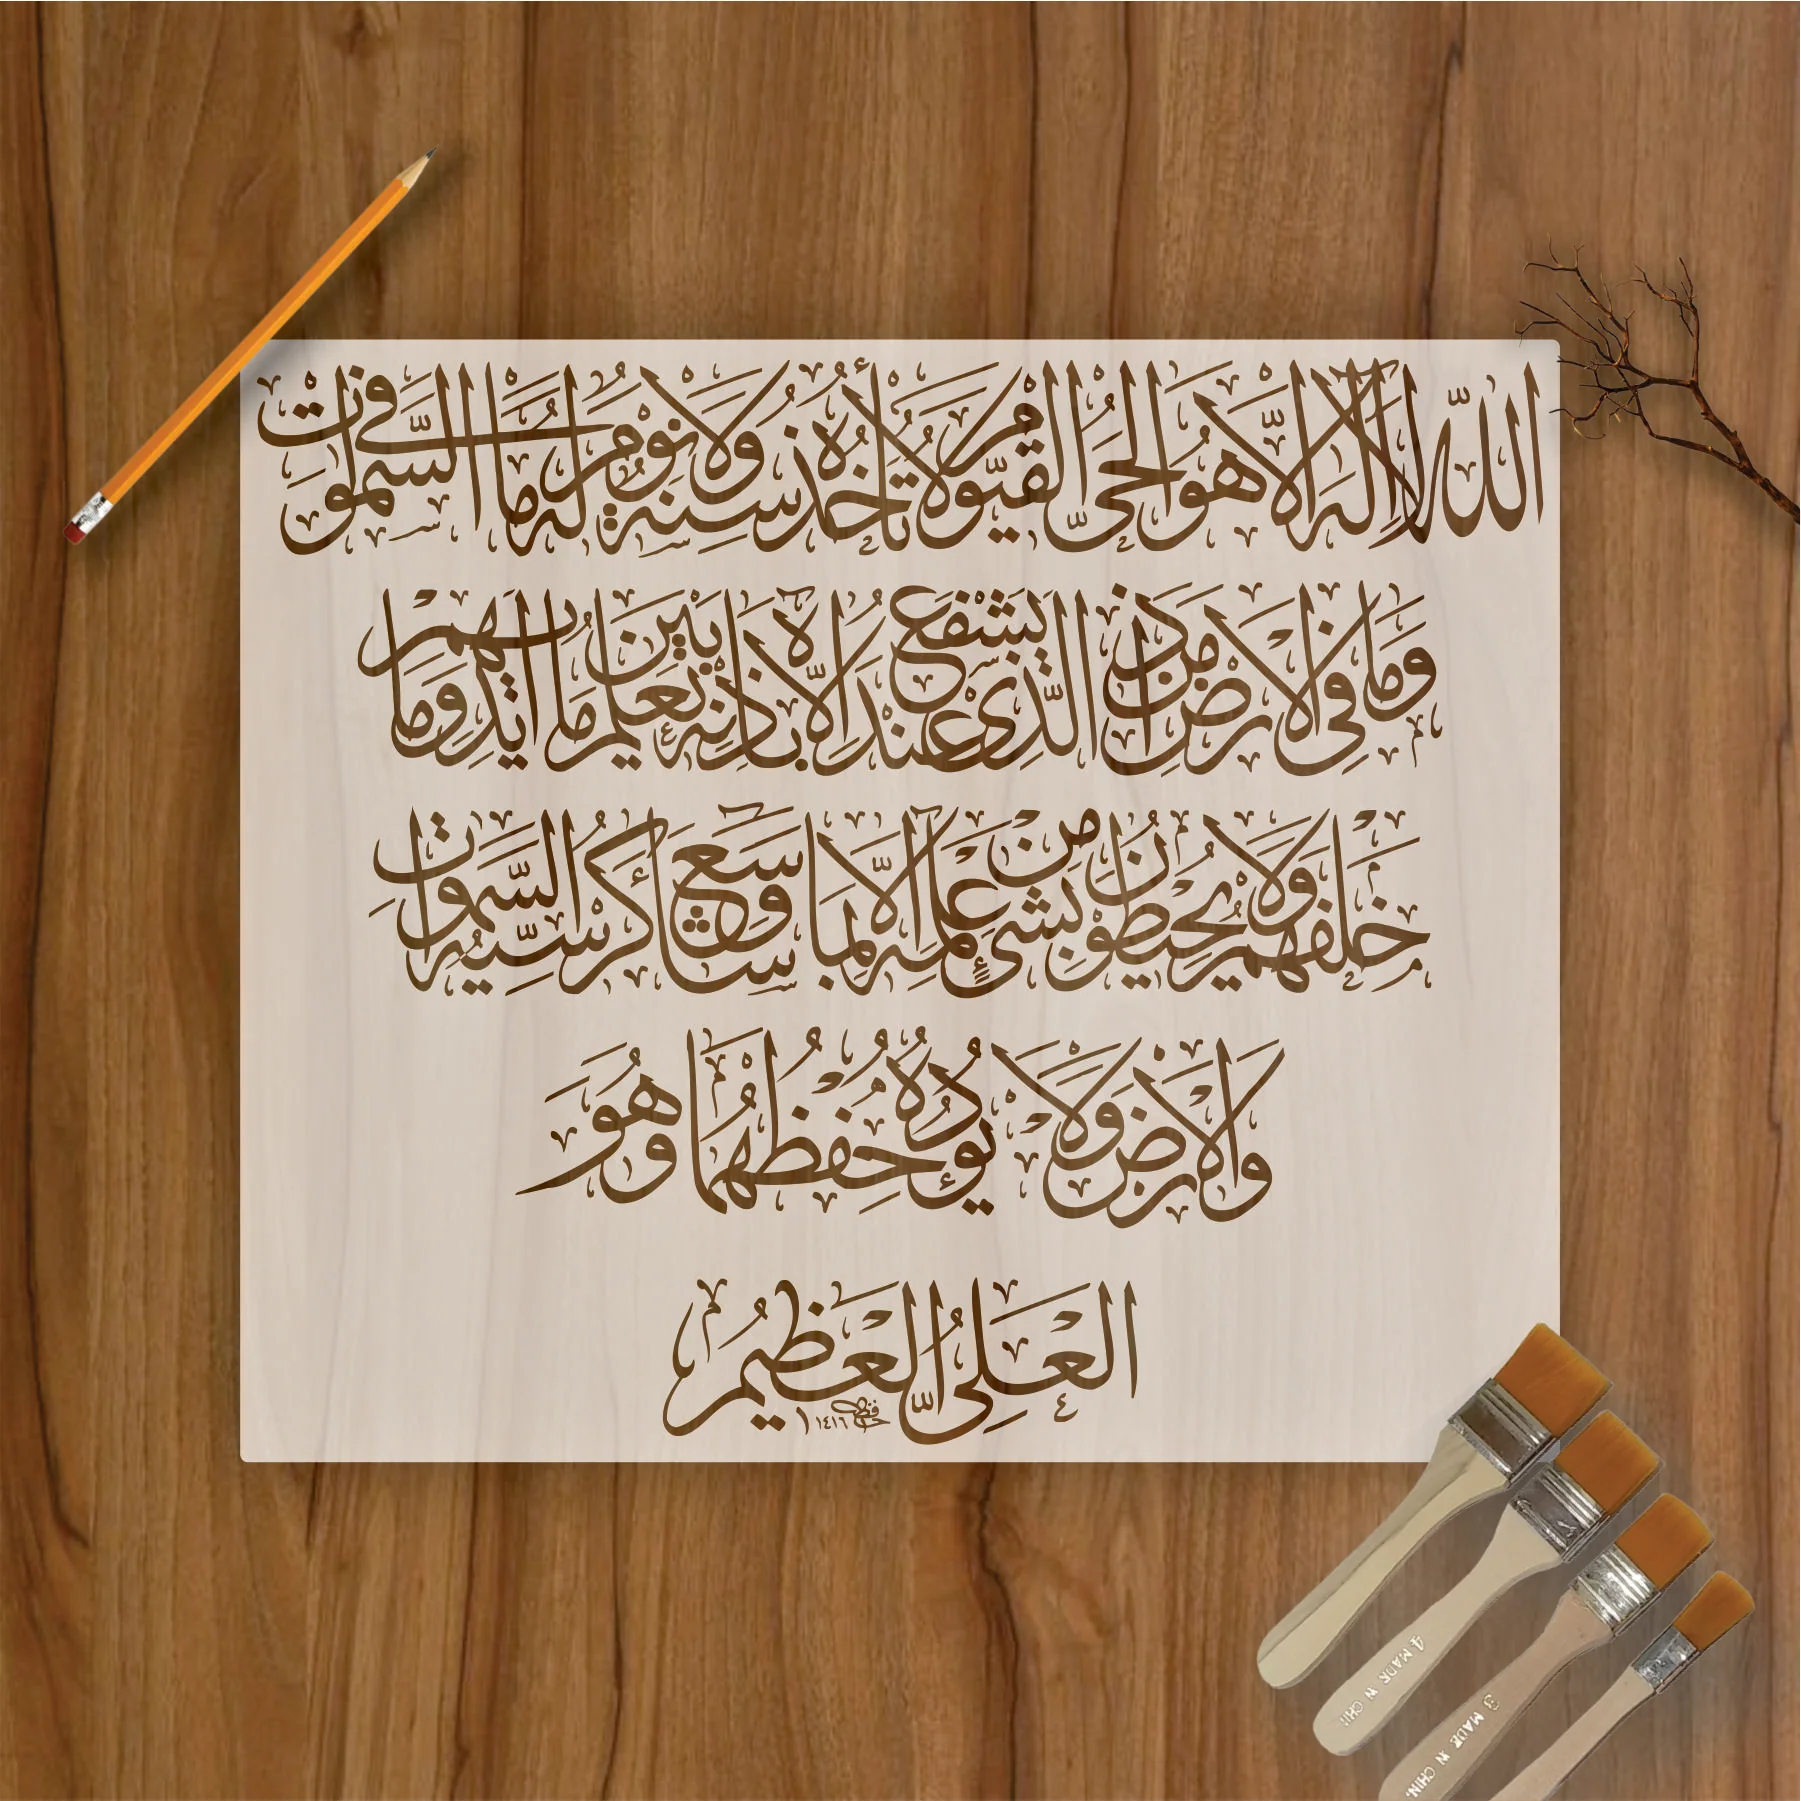 اللّٰهُ لَا إِلٰهَ إِلَّا هُوَ الْحَيُّ الْقَيُّومُ لَا تَأْخُذُهُ سِنَةٌ وَلَا نَوْمٌ لَهُ مَا فِي السَّمٰوَاتِ
وَمَا فِي الْأَرْضِ مَنْ ذَا الَّذِي يَشْفَعُ عِنْدَهُ إِلَّا بِإِذْنِهِ يَعْلَمُ مَا بَيْنَ أَيْدِيهِمْ وَمَا
خَلْفَهُمْ وَلَا يُحِيطُونَ بِشَيْءٍ مِنْ عِلْمِهِ إِلَّا بِمَا شَاءَ وَسِعَ كُرْسِيُّهُ السَّمٰوَاتِ
وَالْأَرْضَ وَلَا يَؤُدُهُ حِفْظُهُمَا وَهُوَ
الْعَلِيُّ الْعَظِيمُ
١٤١٦
4 MADE IN CHI
3 MADE IN CHIN